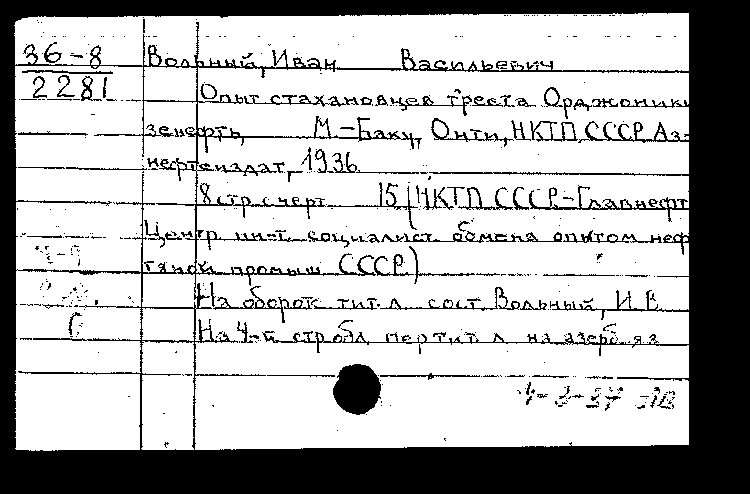 36-8
2281
Вольный, Иван Васильевич
Опыт стахановцев треста Орджоники
зенефть, М.-Баку, Онти, НКТП СССР, Аз-
нефтеиздат, 1936
8 стр. с черт. 15 (НКТП СССР.-Главнефт
Центр. ин-т. социалист. обмена опытом неф
тяной промыш. СССР.)
На оборот. тит. л. сост. Вольный, И. В.
На 4-й стр. обл. пер. тит. л. на азерб. яз.